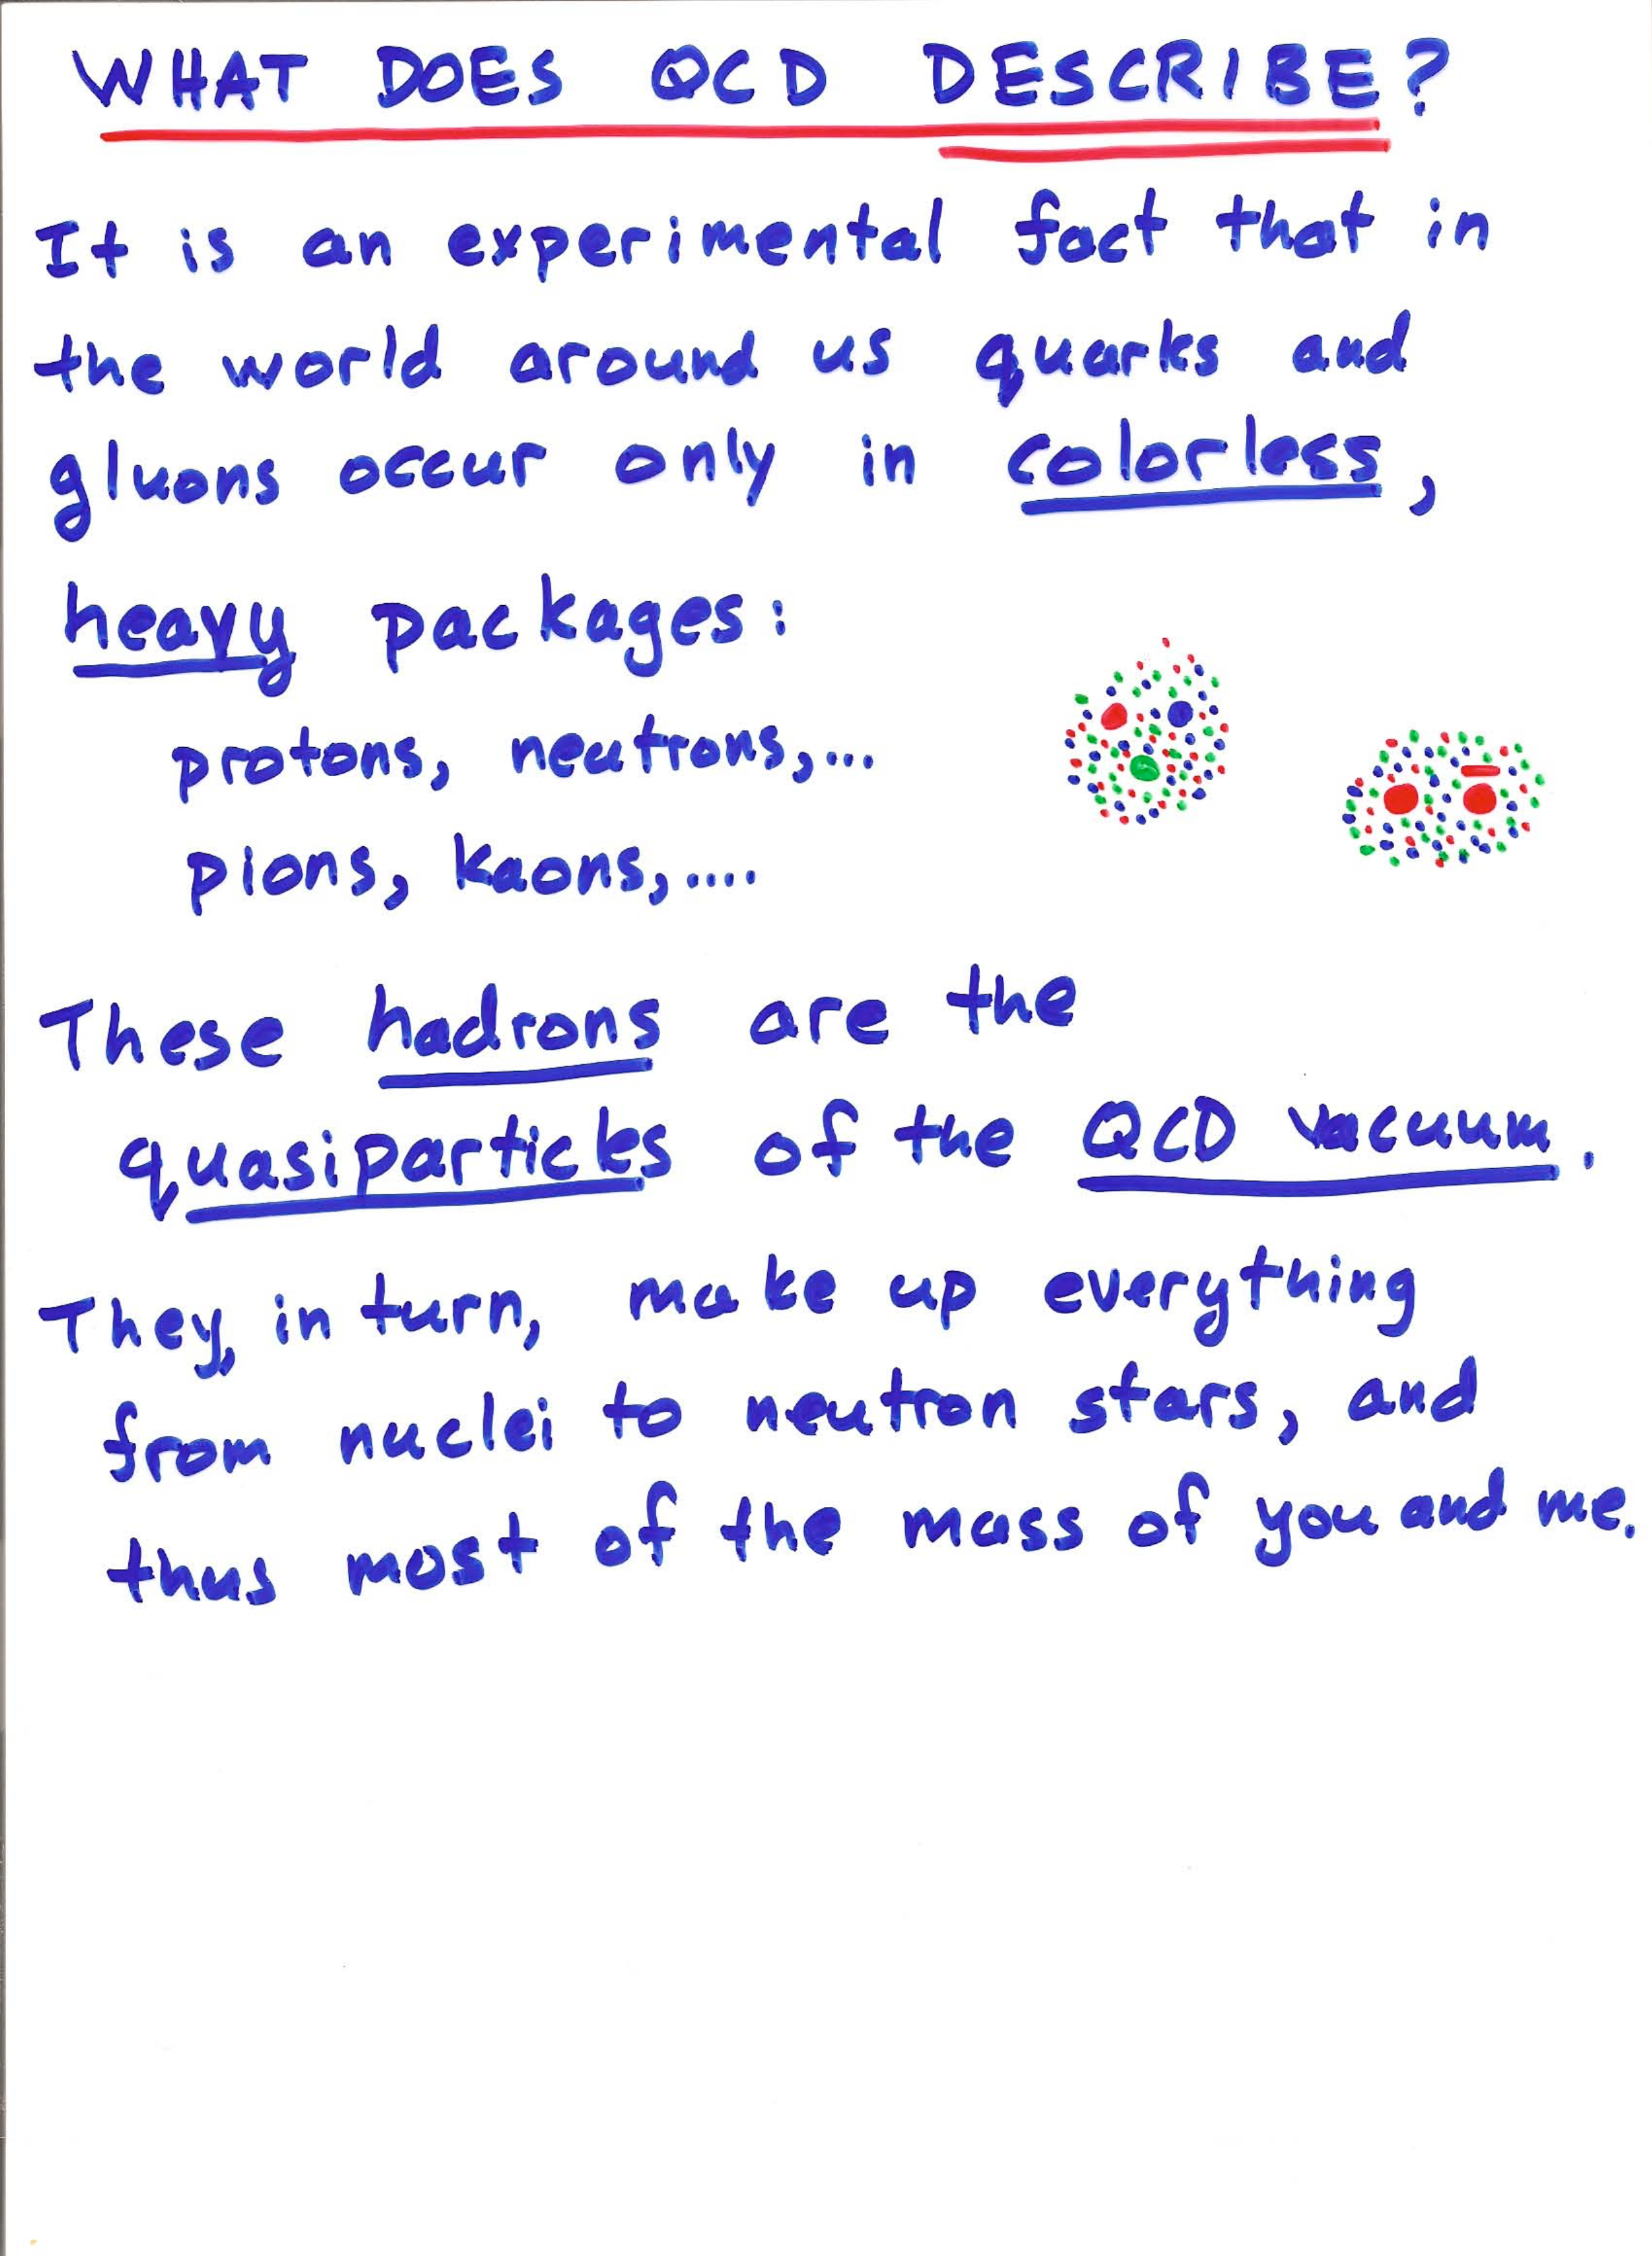 WHAT DOES QCD DESCRIBE?
It is an experimental fact that in
the world around us quarks and
gluons occur only in colorless,
heavy packages:
protons, neutrons,...
pions, kaons,....
These hadrons are the
quasiparticles of the QCD vacuum.
They, in turn, make up everything
from nuclei to neutron stars, and
thus most of the mass of you and me.